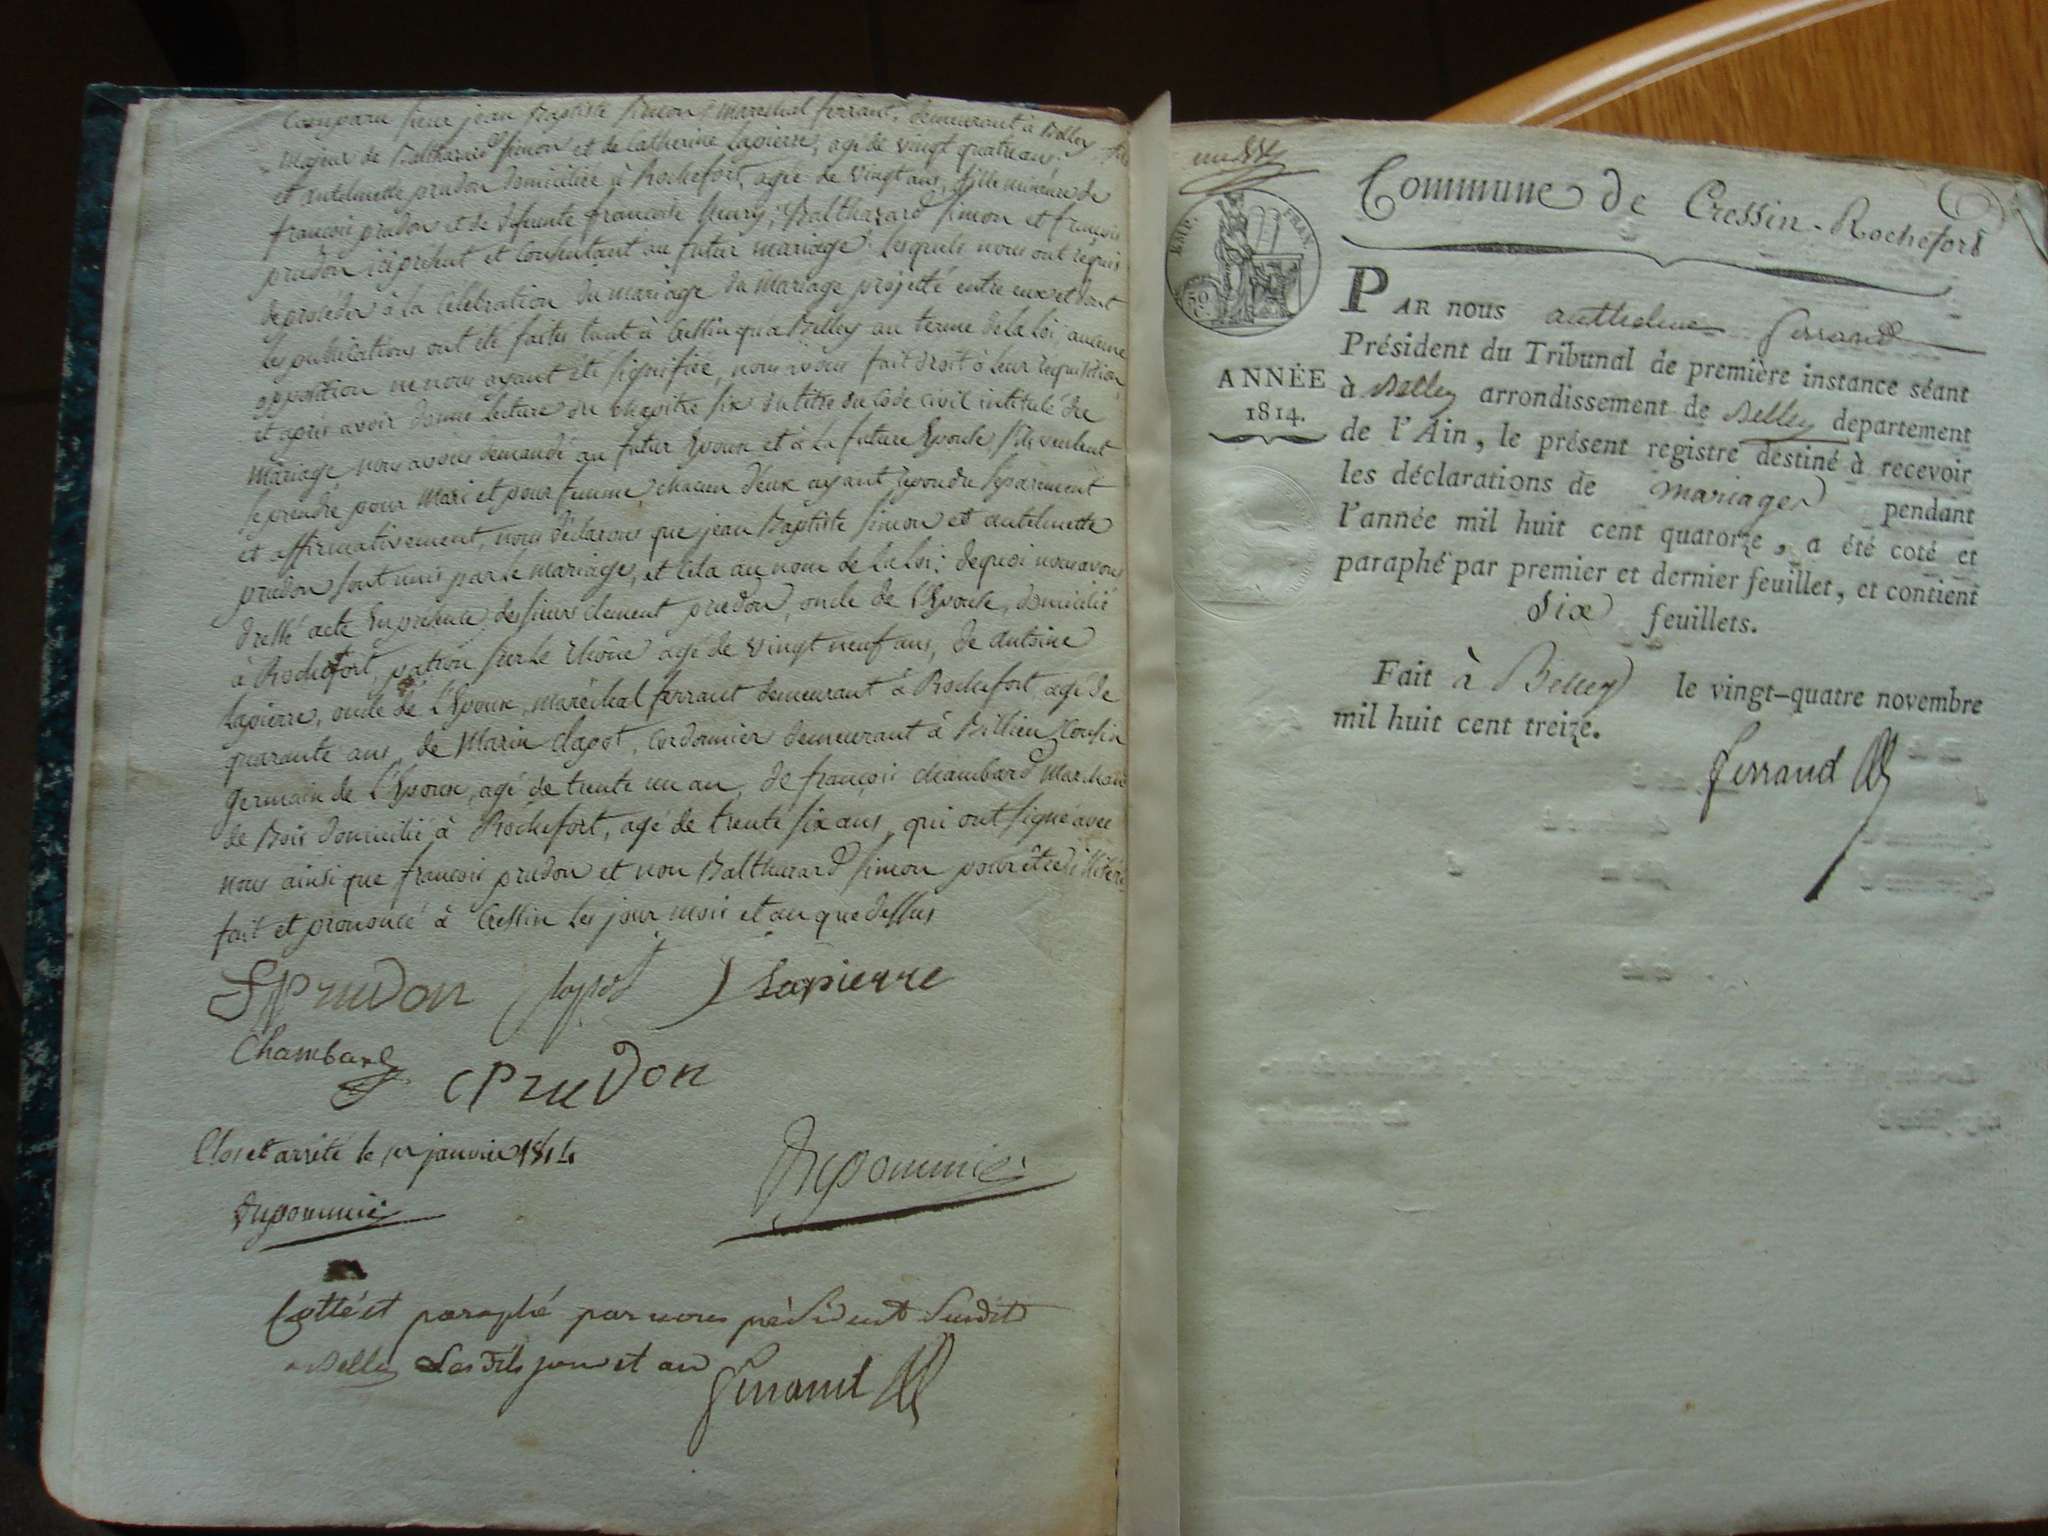 Comparu sieur jean Baptiste Simon, marechal ferrant, demeurant à Belley fils
majeur de Balthazard Simon et de Catherine Lapierre, agé de vingt quatre ans.
et antelmette prudon domiciliée à Rochefort, agée de vingt ans, fille mineure de
françois prudon et de defunte francoise
Balthazard Simon et françois
prudon ici présent et Consentant au futur mariage. lesquels nous ont requis
de procéder à la Célébration du mariage du mariage projetté entre eux et dont
les publications ont été faites tant à Cressin qua Belley au terme de la loi, aucune
opposition ne nous ayant été signifiée, nous avons fait droit à leur requisition,
et apres avoir donné lecture du chapitre six du titre du Code civil intitulé du
mariage, nous avons demandé au futur Epoux et à la future Epouse s'ils veulent
se prendre pour mari et pour femme, chacun d'eux ayant repondu séparement
et affirmativement, nous déclarons que jean Baptiste Simon et antelmette
prudon sont unis par le mariage, et cela au nom de la loi; de quoi nous avons
dressé acte En présence des sieurs clement prudon, oncle de l'Epouse, domicilié
à Rochefort, patron sur le rhône agé de vingt neuf ans, de antoine
Lapierre, oncle de l'Epoux, maréchal ferrant demeurant à Rochefort, agé de
quarante ans, de Marin clapot, Cordonnier demeurant à Billieu Cousin
germain de l'Epoux, agé de trente un an, de françois chambard marchand
de Bois domicilié à Rochefort, agé de trente six ans, qui ont signé avec
nous ainsi que françois prudon et non Balthazard Simon pour être illitéré
fait et prononcé à Cressin les jour mois et an que dessus
F Prudon Clapot Lapierre
Chambard C Prudon
Clos et arrêté le 1er janvier 1814
Dupommié Dupommié
Cotté et paraphé par nous président susdit
à Belley Les dits jour et an Ferrand
Commune de Cressin-Rochefort
EMP. FRAN.
50
ANNÉE
1814.
PAR nous anthelme ferrand
Président du Tribunal de première instance séant
à Belley arrondissement de Belley departement
de l'Ain, le présent registre destiné à recevoir
les déclarations de mariages pendant
l'année mil huit cent quatorze, a été coté et
paraphé par premier et dernier feuillet, et contient
six feuillets.
Fait à Belley le vingt-quatre novembre
mil huit cent treize.
ferrand